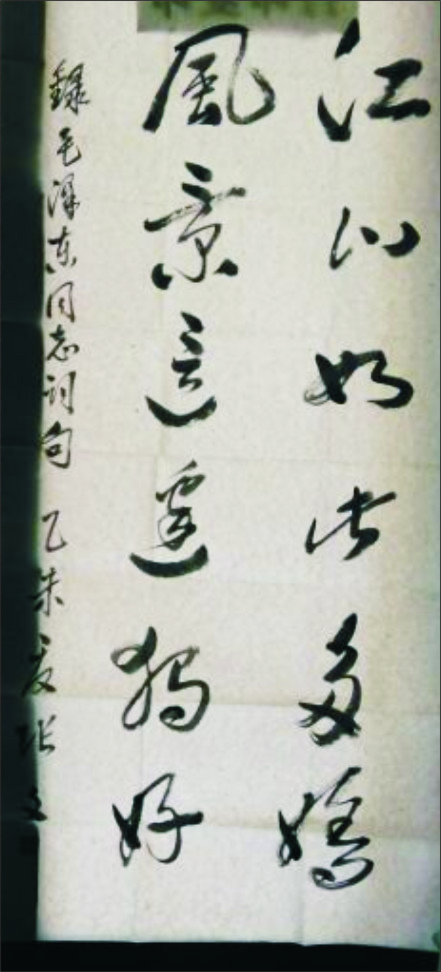 江山如此多娇
風景這邊獨好
録毛泽东同志词句 乙未夏 张文